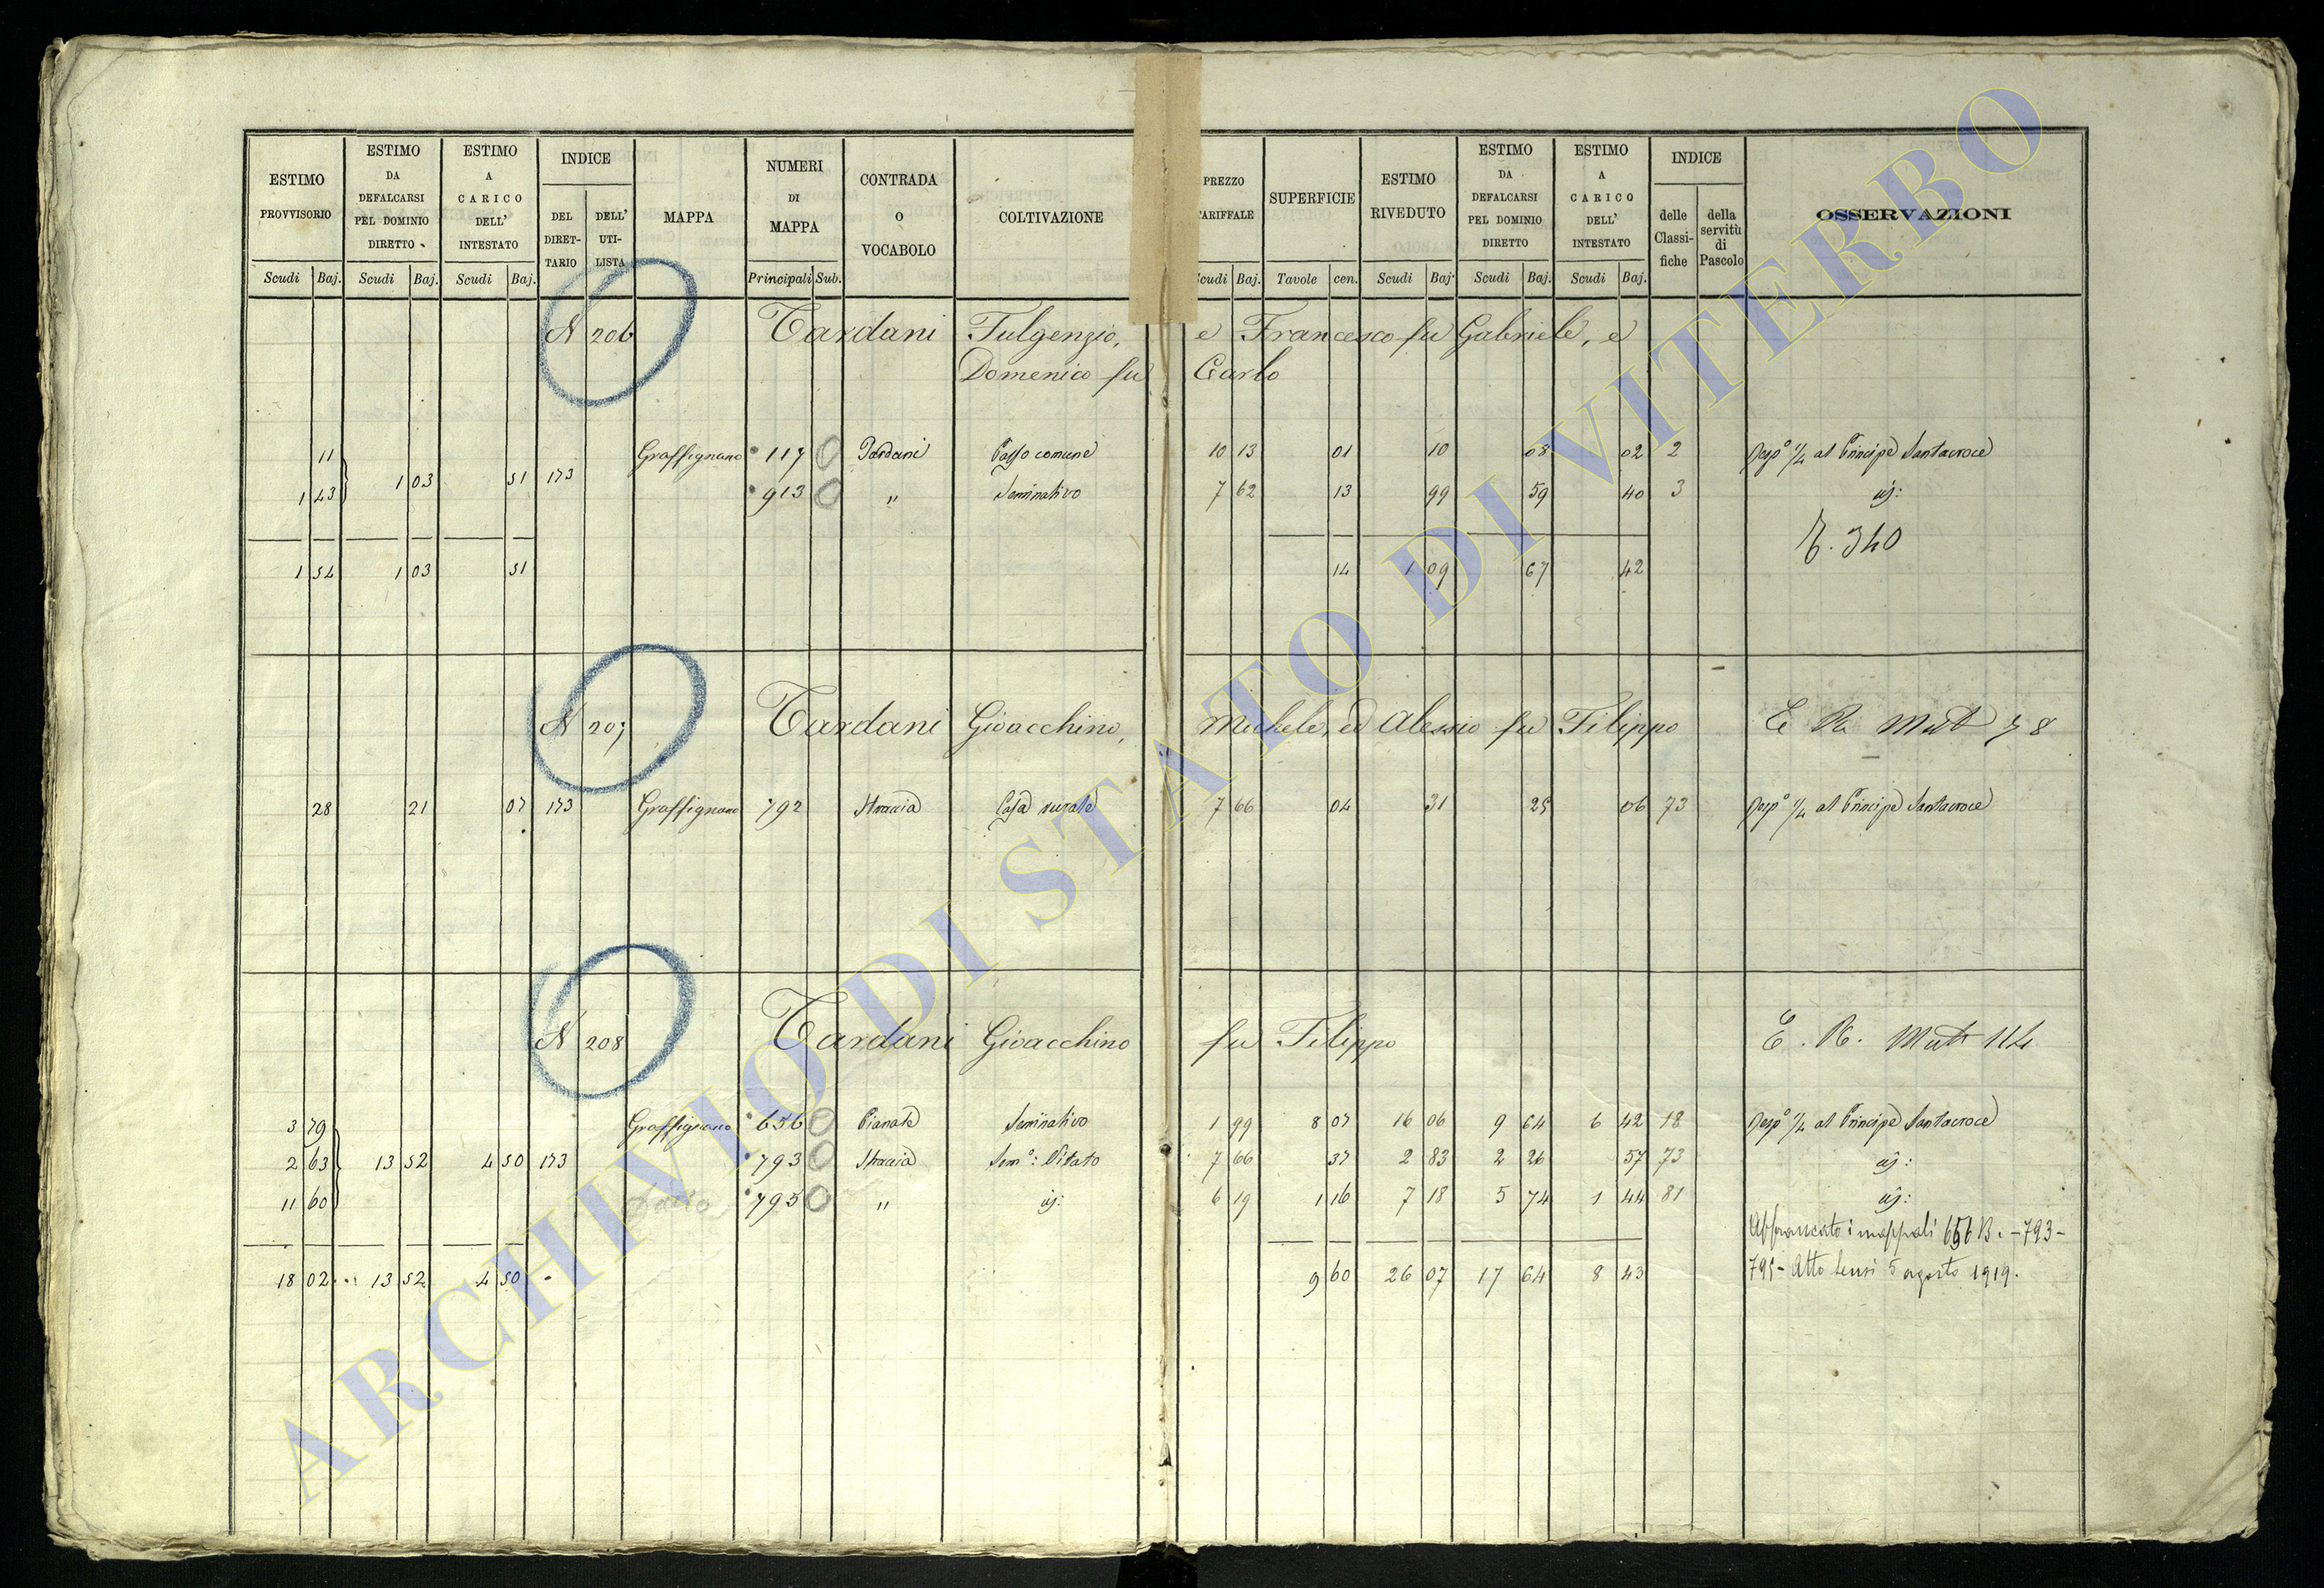 ESTIMO PROVVISORIO Scudi Baj.
ESTIMO DA DEFALCARSI PEL DOMINIO DIRETTO Scudi Baj.
ESTIMO A CARICO DELL' INTESTATO Scudi Baj.
INDICE DEL DIRET-TARIO DELL' UTI-LISTA
MAPPA
NUMERI DI MAPPA Principali Sub.
CONTRADA O VOCABOLO
COLTIVAZIONE
PREZZO TARIFFALE Scudi Baj.
SUPERFICIE Tavole cen.
ESTIMO RIVEDUTO Scudi Baj.
ESTIMO DA DEFALCARSI PEL DOMINIO DIRETTO Scudi Baj.
ESTIMO A CARICO DELL' INTESTATO Scudi Baj.
INDICE delle Classi-fiche della servitù di Pascolo
OSSERVAZIONI
N 206 Tardani Fulgenzio, e Francesco fu Gabriele, e
Domenico fu Carlo
11 Graffignano 117 Tardani Casso comune 10 13 01 10 08 02 2 Risp° 1/4 al Principe Santacroce
1 43 1 03 51 173 913 " Seminativo 7 62 13 99 59 40 3 id:
340
1 54 1 03 51 14 1 09 67 42
N 207 Tardani Gioacchino, Michele, ed Alessio fu Filippo Mut 78
28 21 07 173 Graffignano 792 Casa rurale 7 66 04 31 25 06 73 Risp° 1/4 al Principe Santacroce
N 208 Tardani Gioacchino fu Filippo E. R. Mut 114
3 79 Graffignano 656 Pianate Seminativo 1 99 8 07 16 06 9 64 6 42 18 Risp° 1/4 al Principe Santacroce
2 63 13 52 4 50 173 793 Sem°: Vitato 7 66 37 2 83 2 26 57 73 id:
11 60 795 " id: 6 19 1 16 7 18 5 74 1 44 81 id:
Affrancato i mappali 656 B. - 793 -
18 02 13 52 4 50 9 60 26 07 17 64 8 43 795 - Atto 5 agosto 1919.
ARCHIVIO DI STATO DI VITERBO